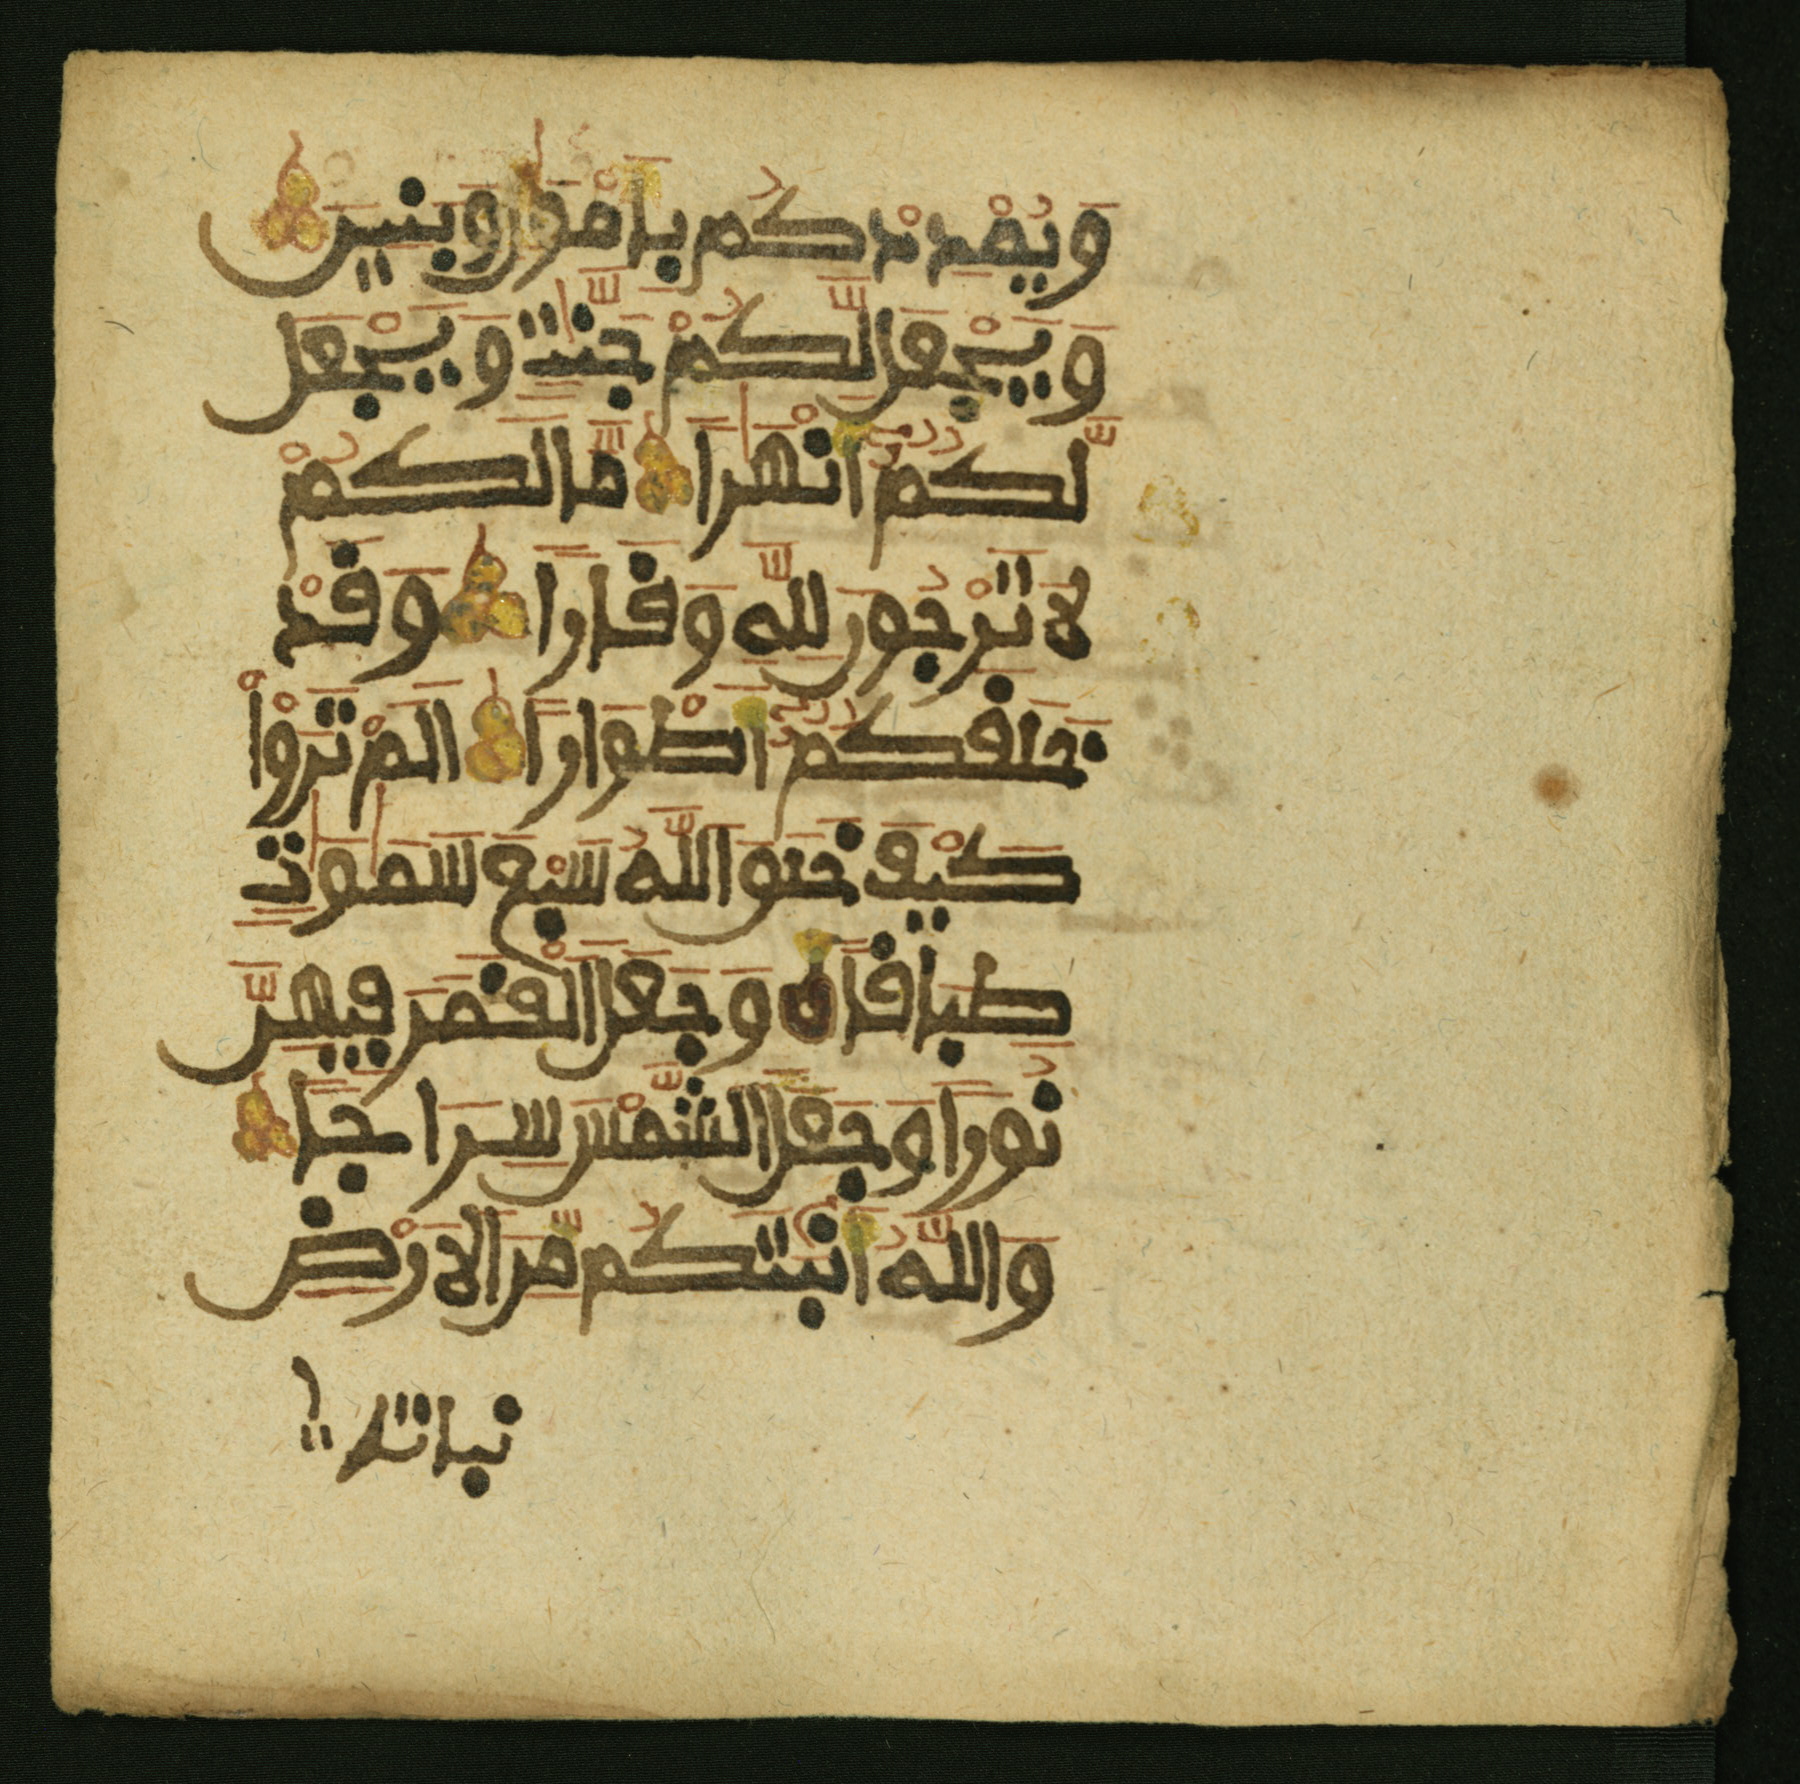 وَيُمْدِدْكُم بِأَمْوَٰلٍ وَبَنِينَ
وَيَجْعَل لَّكُمْ جَنَّٰتٍ وَيَجْعَل
لَّكُمُۥٓ أَنْهَٰرًا مَّا لَكُمْ
لَا تَرْجُونَ لِلَّهِ وَقَارًا وَقَدْ
خَلَقَكُمُۥٓ أَطْوَارًا أَلَمْ تَرَوْاْ
كَيْفَ خَلَقَ اللَّهُ سَبْعَ سَمَٰوَٰتٍ
طِبَاقًا وَجَعَلَ الْقَمَرَ فِيهِنَّ
نُورًا وَجَعَلَ الشَّمْسَ سِرَاجًا
وَاللَّهُ أَنۢبَتَكُم مِّنَ الْأَرْضِ
نباتا